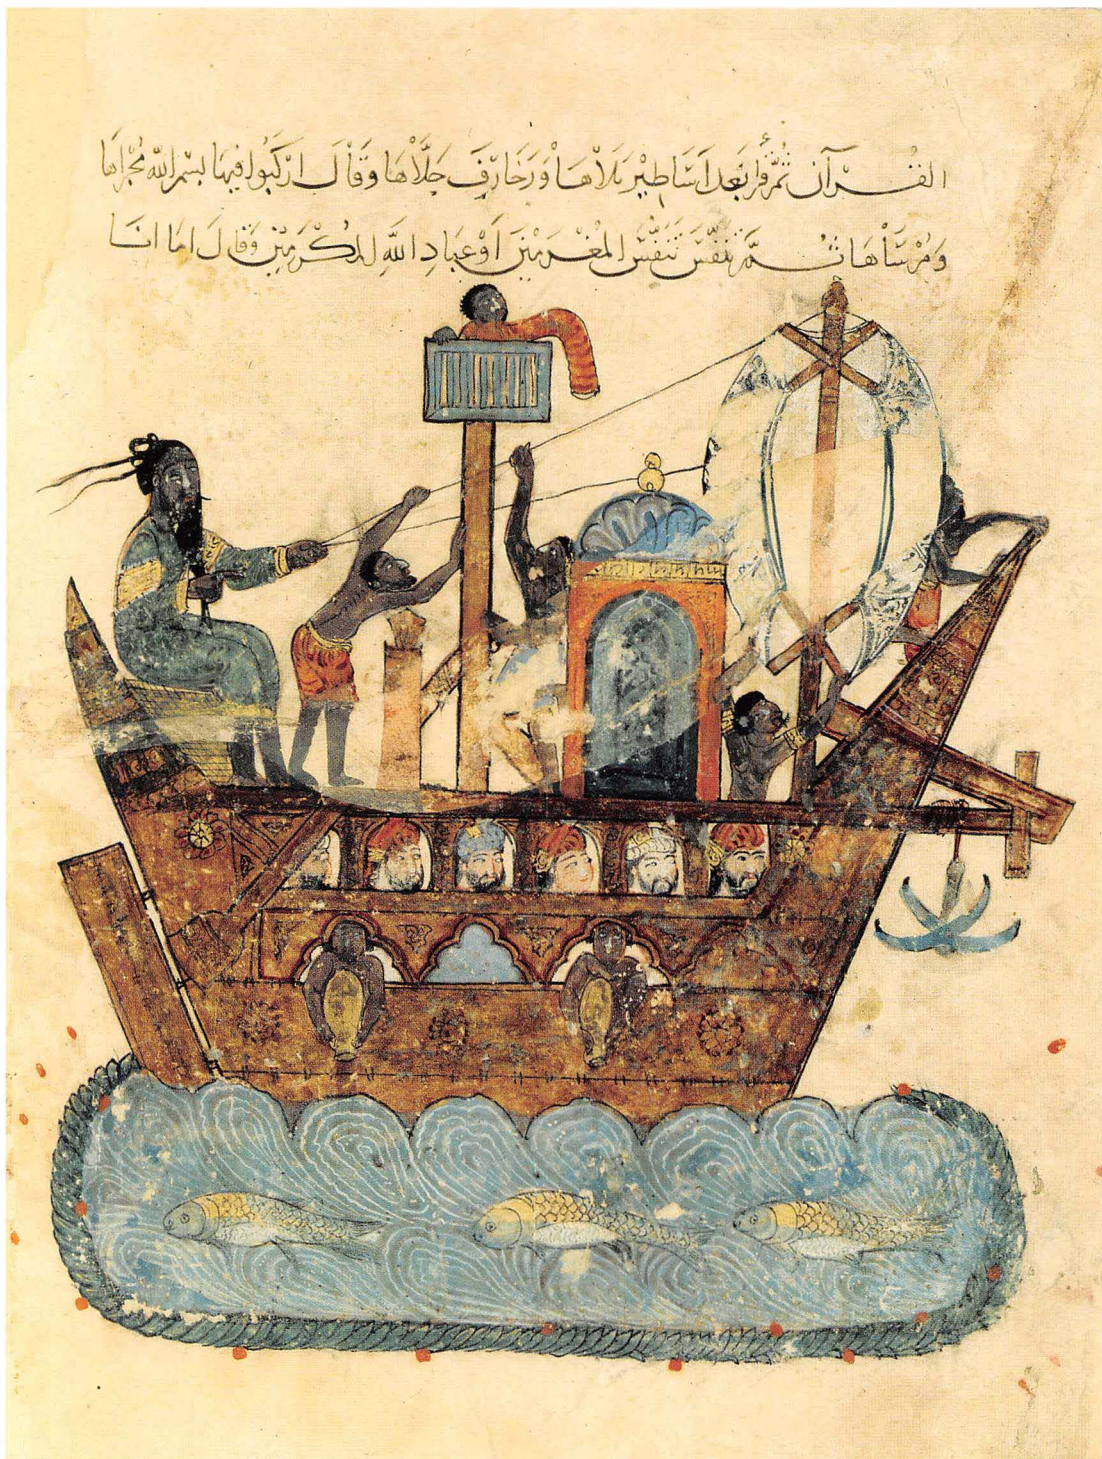 القُرْآن ثُمَّ قَرَأ بَعدَ اَسَاطِيْرَ تَلَاهَا وَزَخَارِفَ جَلَّاهَا وَقَالَ ارْكَبُوا فِيهَا بِسْمِ اللّٰهِ مُجْرَاهَا
وَمُرْسَاهَا ثُمَّ تَنَفَّسَ تَنَفُّسَ المُغْرَمِيْنَ اَوْ عِبَادِ اللّٰهِ المُكْرَمِيْنَ وَقَالَ اَمَا انَا